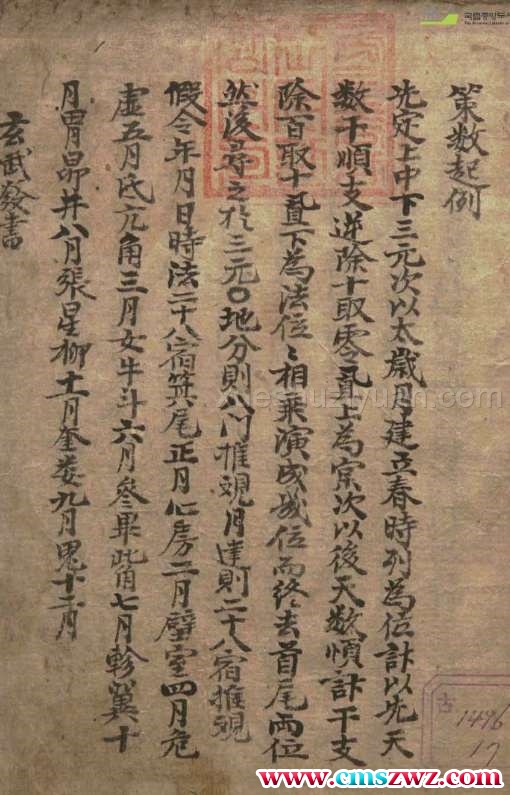 策数起例
先定上中下三元次以太歲月建立春時列為位計以先天
数干順支逆除十取零置上為宗次以後天数順計干支
除百取十置下為法位〻相乘演成幾位而終去首尾両位
然後尋之於三元〇地分則八門推覌月建則二十八宿推覌
假令年月日時法二十八宿箕尾正月心房二月壁室四月危
虚五月氐亢角三月女牛斗六月參畢觜七月軫翼十
月胃昴井八月張星柳十一月奎婁九月鬼十二月
玄武發書
古
1496
17
www.cmszwz.com